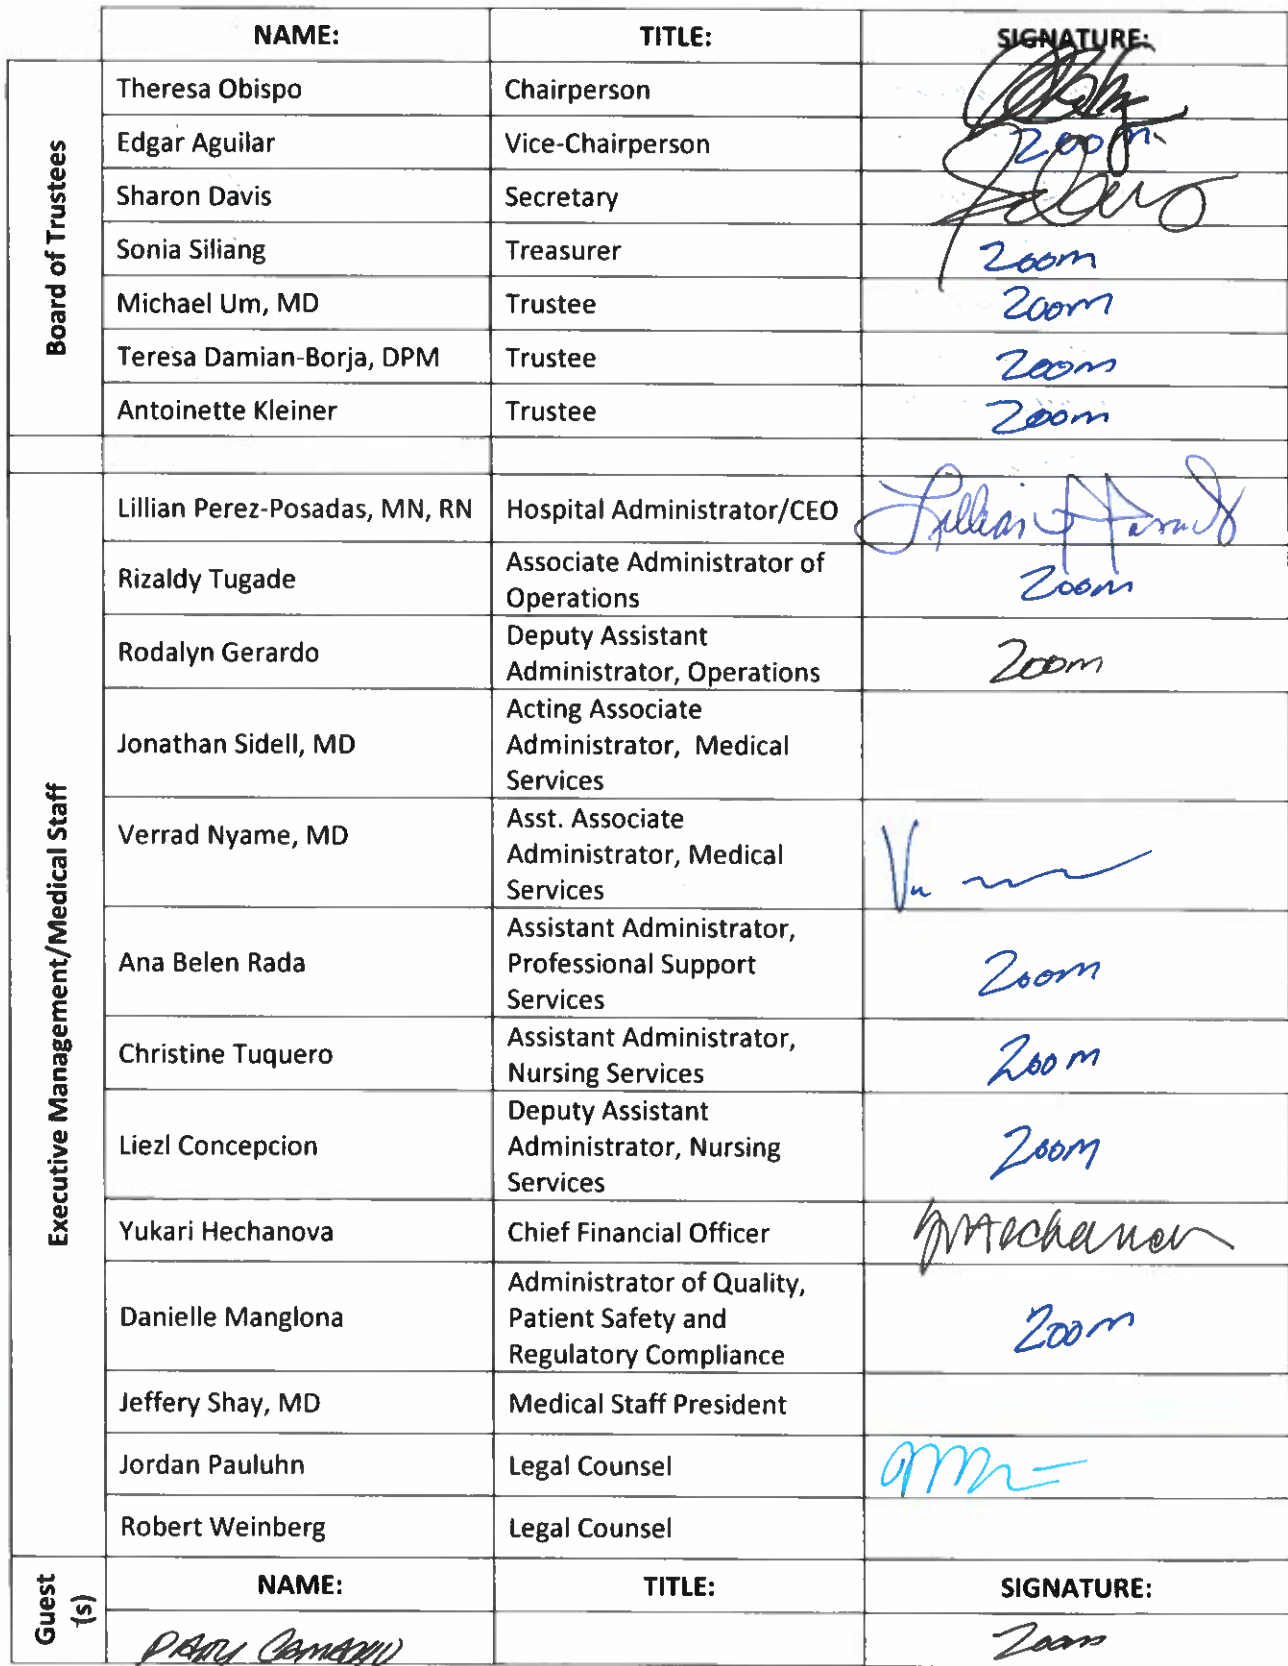 NAME: TITLE: SIGNATURE:
Board of Trustees
Theresa Obispo Chairperson
Edgar Aguilar Vice-Chairperson Zoom
Sharon Davis Secretary
Sonia Siliang Treasurer Zoom
Michael Um, MD Trustee Zoom
Teresa Damian-Borja, DPM Trustee Zoom
Antoinette Kleiner Trustee Zoom
Executive Management/Medical Staff
Lillian Perez-Posadas, MN, RN Hospital Administrator/CEO Lillian
Rizaldy Tugade Associate Administrator of
Operations Zoom
Rodalyn Gerardo Deputy Assistant
Administrator, Operations Zoom
Jonathan Sidell, MD Acting Associate
Administrator, Medical
Services
Verrad Nyame, MD Asst. Associate
Administrator, Medical
Services
Ana Belen Rada Assistant Administrator,
Professional Support
Services Zoom
Christine Tuquero Assistant Administrator,
Nursing Services Zoom
Liezl Concepcion Deputy Assistant
Administrator, Nursing
Services Zoom
Yukari Hechanova Chief Financial Officer
Danielle Manglona Administrator of Quality,
Patient Safety and
Regulatory Compliance Zoom
Jeffery Shay, MD Medical Staff President
Jordan Pauluhn Legal Counsel
Robert Weinberg Legal Counsel
Guest
(s)
NAME: TITLE: SIGNATURE:
Zoom